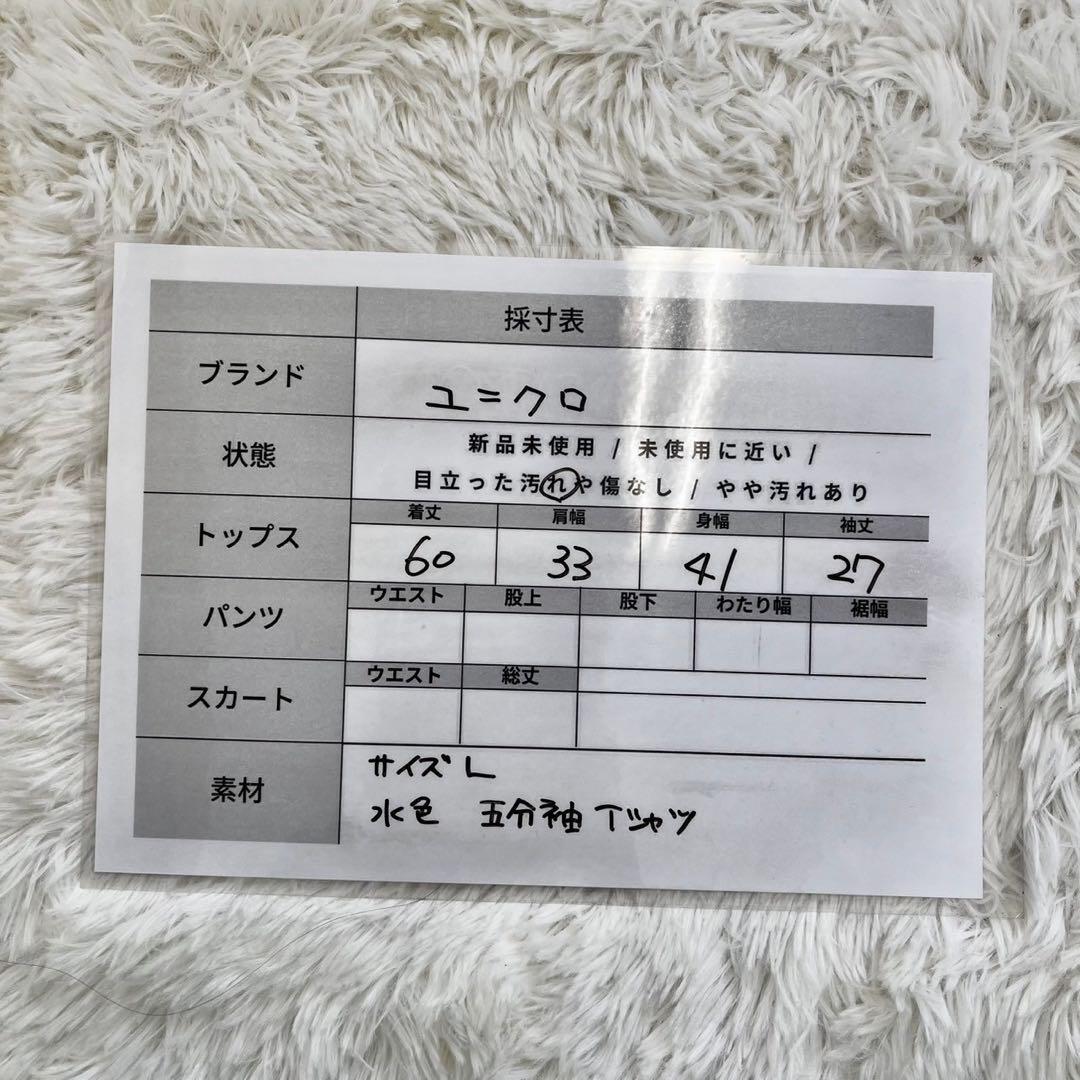 採寸表
ブランド
ユニクロ
状態
新品未使用 / 未使用に近い /
目立った汚れや傷なし / やや汚れあり
トップス
着丈 肩幅 身幅 袖丈
60 33 41 27
パンツ
ウエスト 股上 股下 わたり幅 裾幅
スカート
ウエスト 総丈
素材
サイズ L
水色 五分袖 Tシャツ